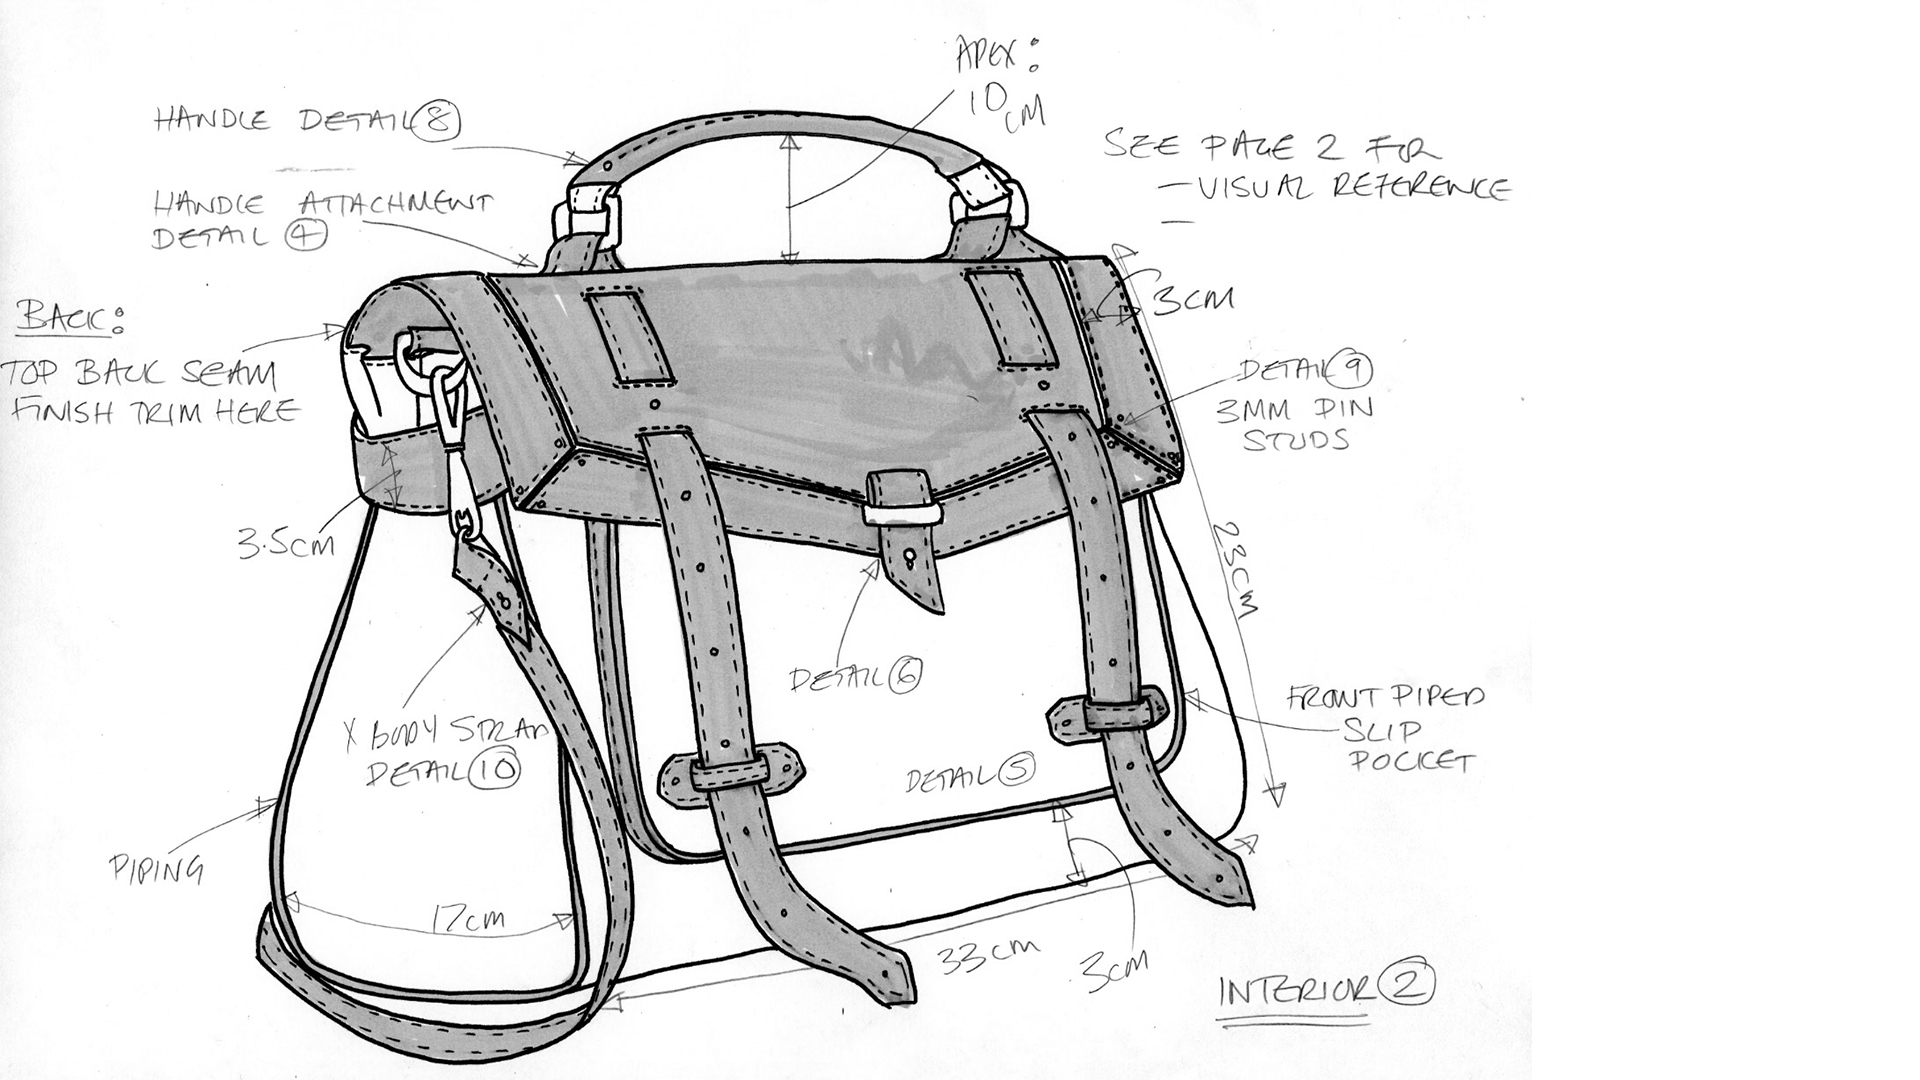 APEX:
10
CM
HANDLE DETAIL 8
HANDLE ATTACHMENT
DETAIL 4
SEE PAGE 2 FOR
— VISUAL REFERENCE
BACK:
TOP BACK SEAM
FINISH TRIM HERE
3cm
DETAIL 9
3MM DIN
STUDS
3.5cm
23cm
DETAIL 6
X BODY STRAP
DETAIL 10
FRONT PIPED
SLIP
POCKET
DETAIL 5
PIPING
17cm
33cm
3cm
INTERIOR 2